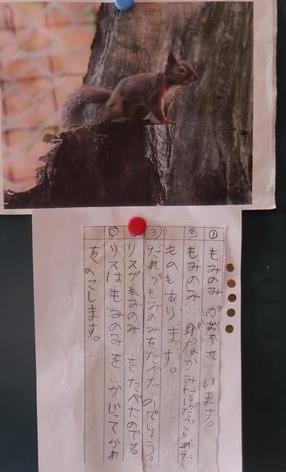 ① もみのみがおちています。
③ もみのみ
ものもあります。
③ だれがもみのみをたべたのでしょう。
リスがもみのみをたべたのである
⑤ リスはもみのみをかじってかわ
をのこします。